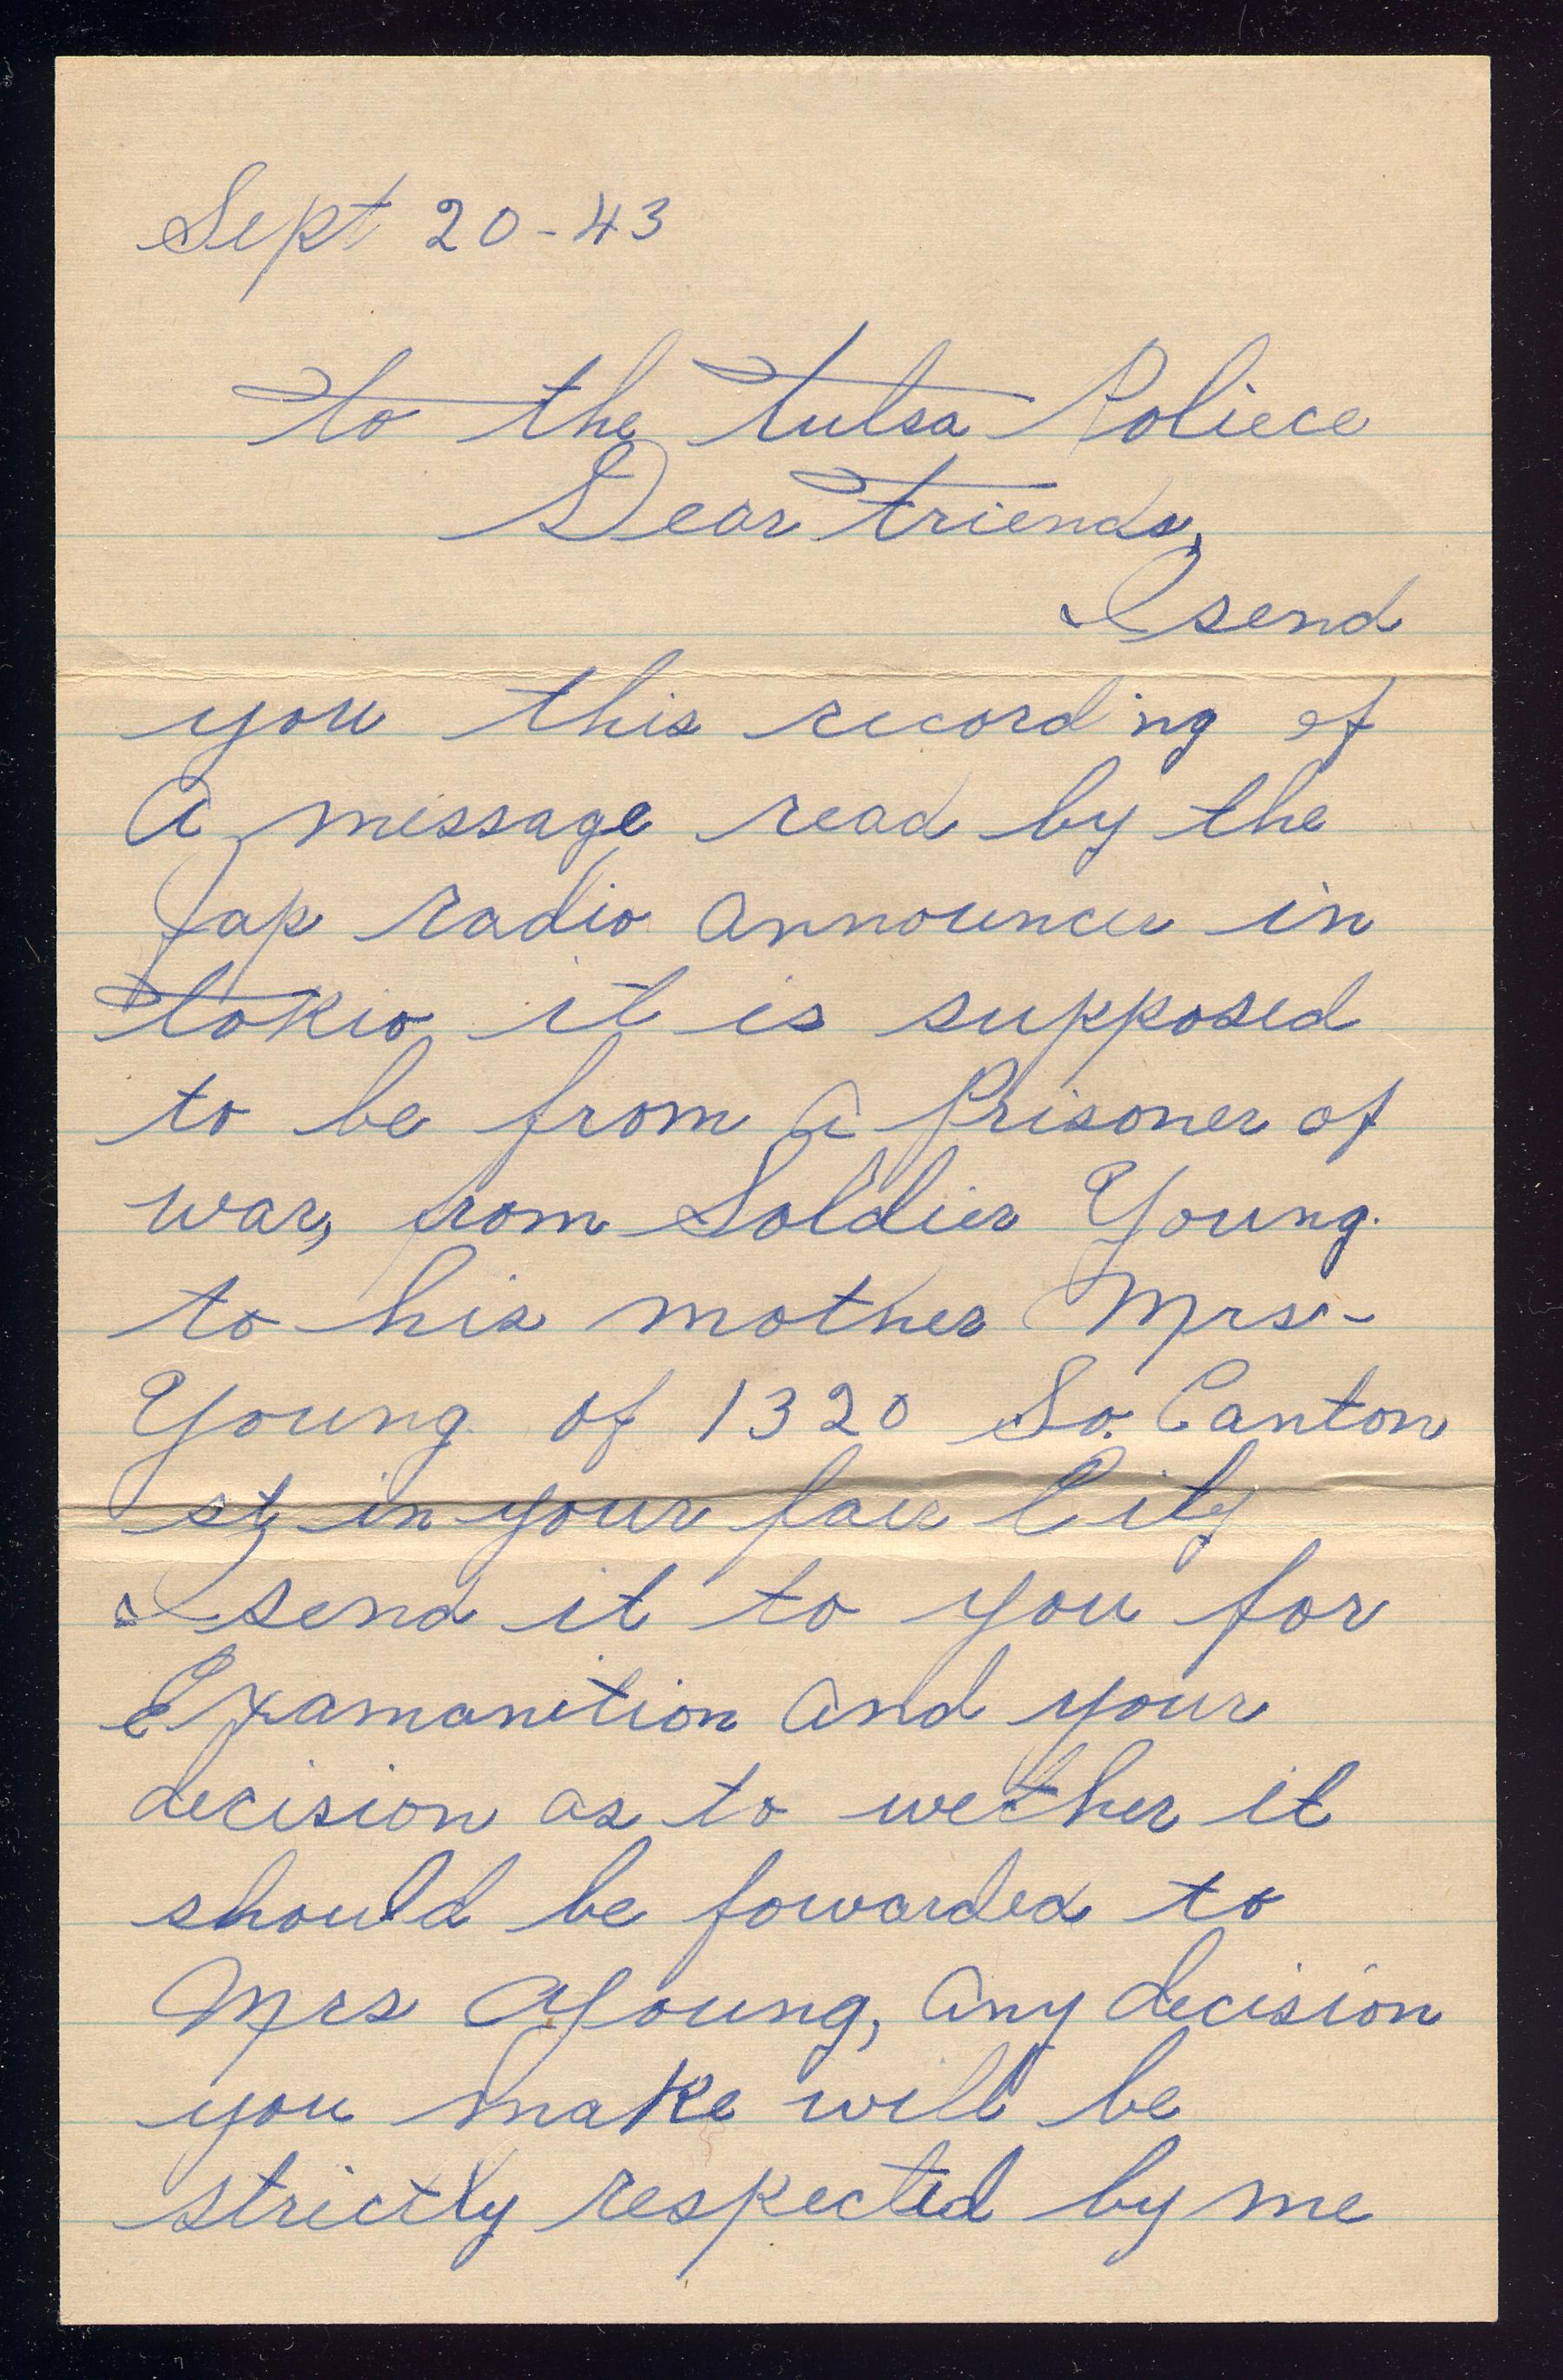 Sept 20-43
to the Tulsa Poliece
Dear Friends,
I send
you this recording of
A message read by the
Jap radio announcer in
Tokio it is supposed
to be from a Prisoner of
war, from Soldier Young.
to his mother Mrs-
Young of 1320 So. Canton
st, in your fair City
I send it to you for
Examanition and your
decision as to wether it
should be fowarded to
Mrs Young, any decision
you make will be
strictly respected by me